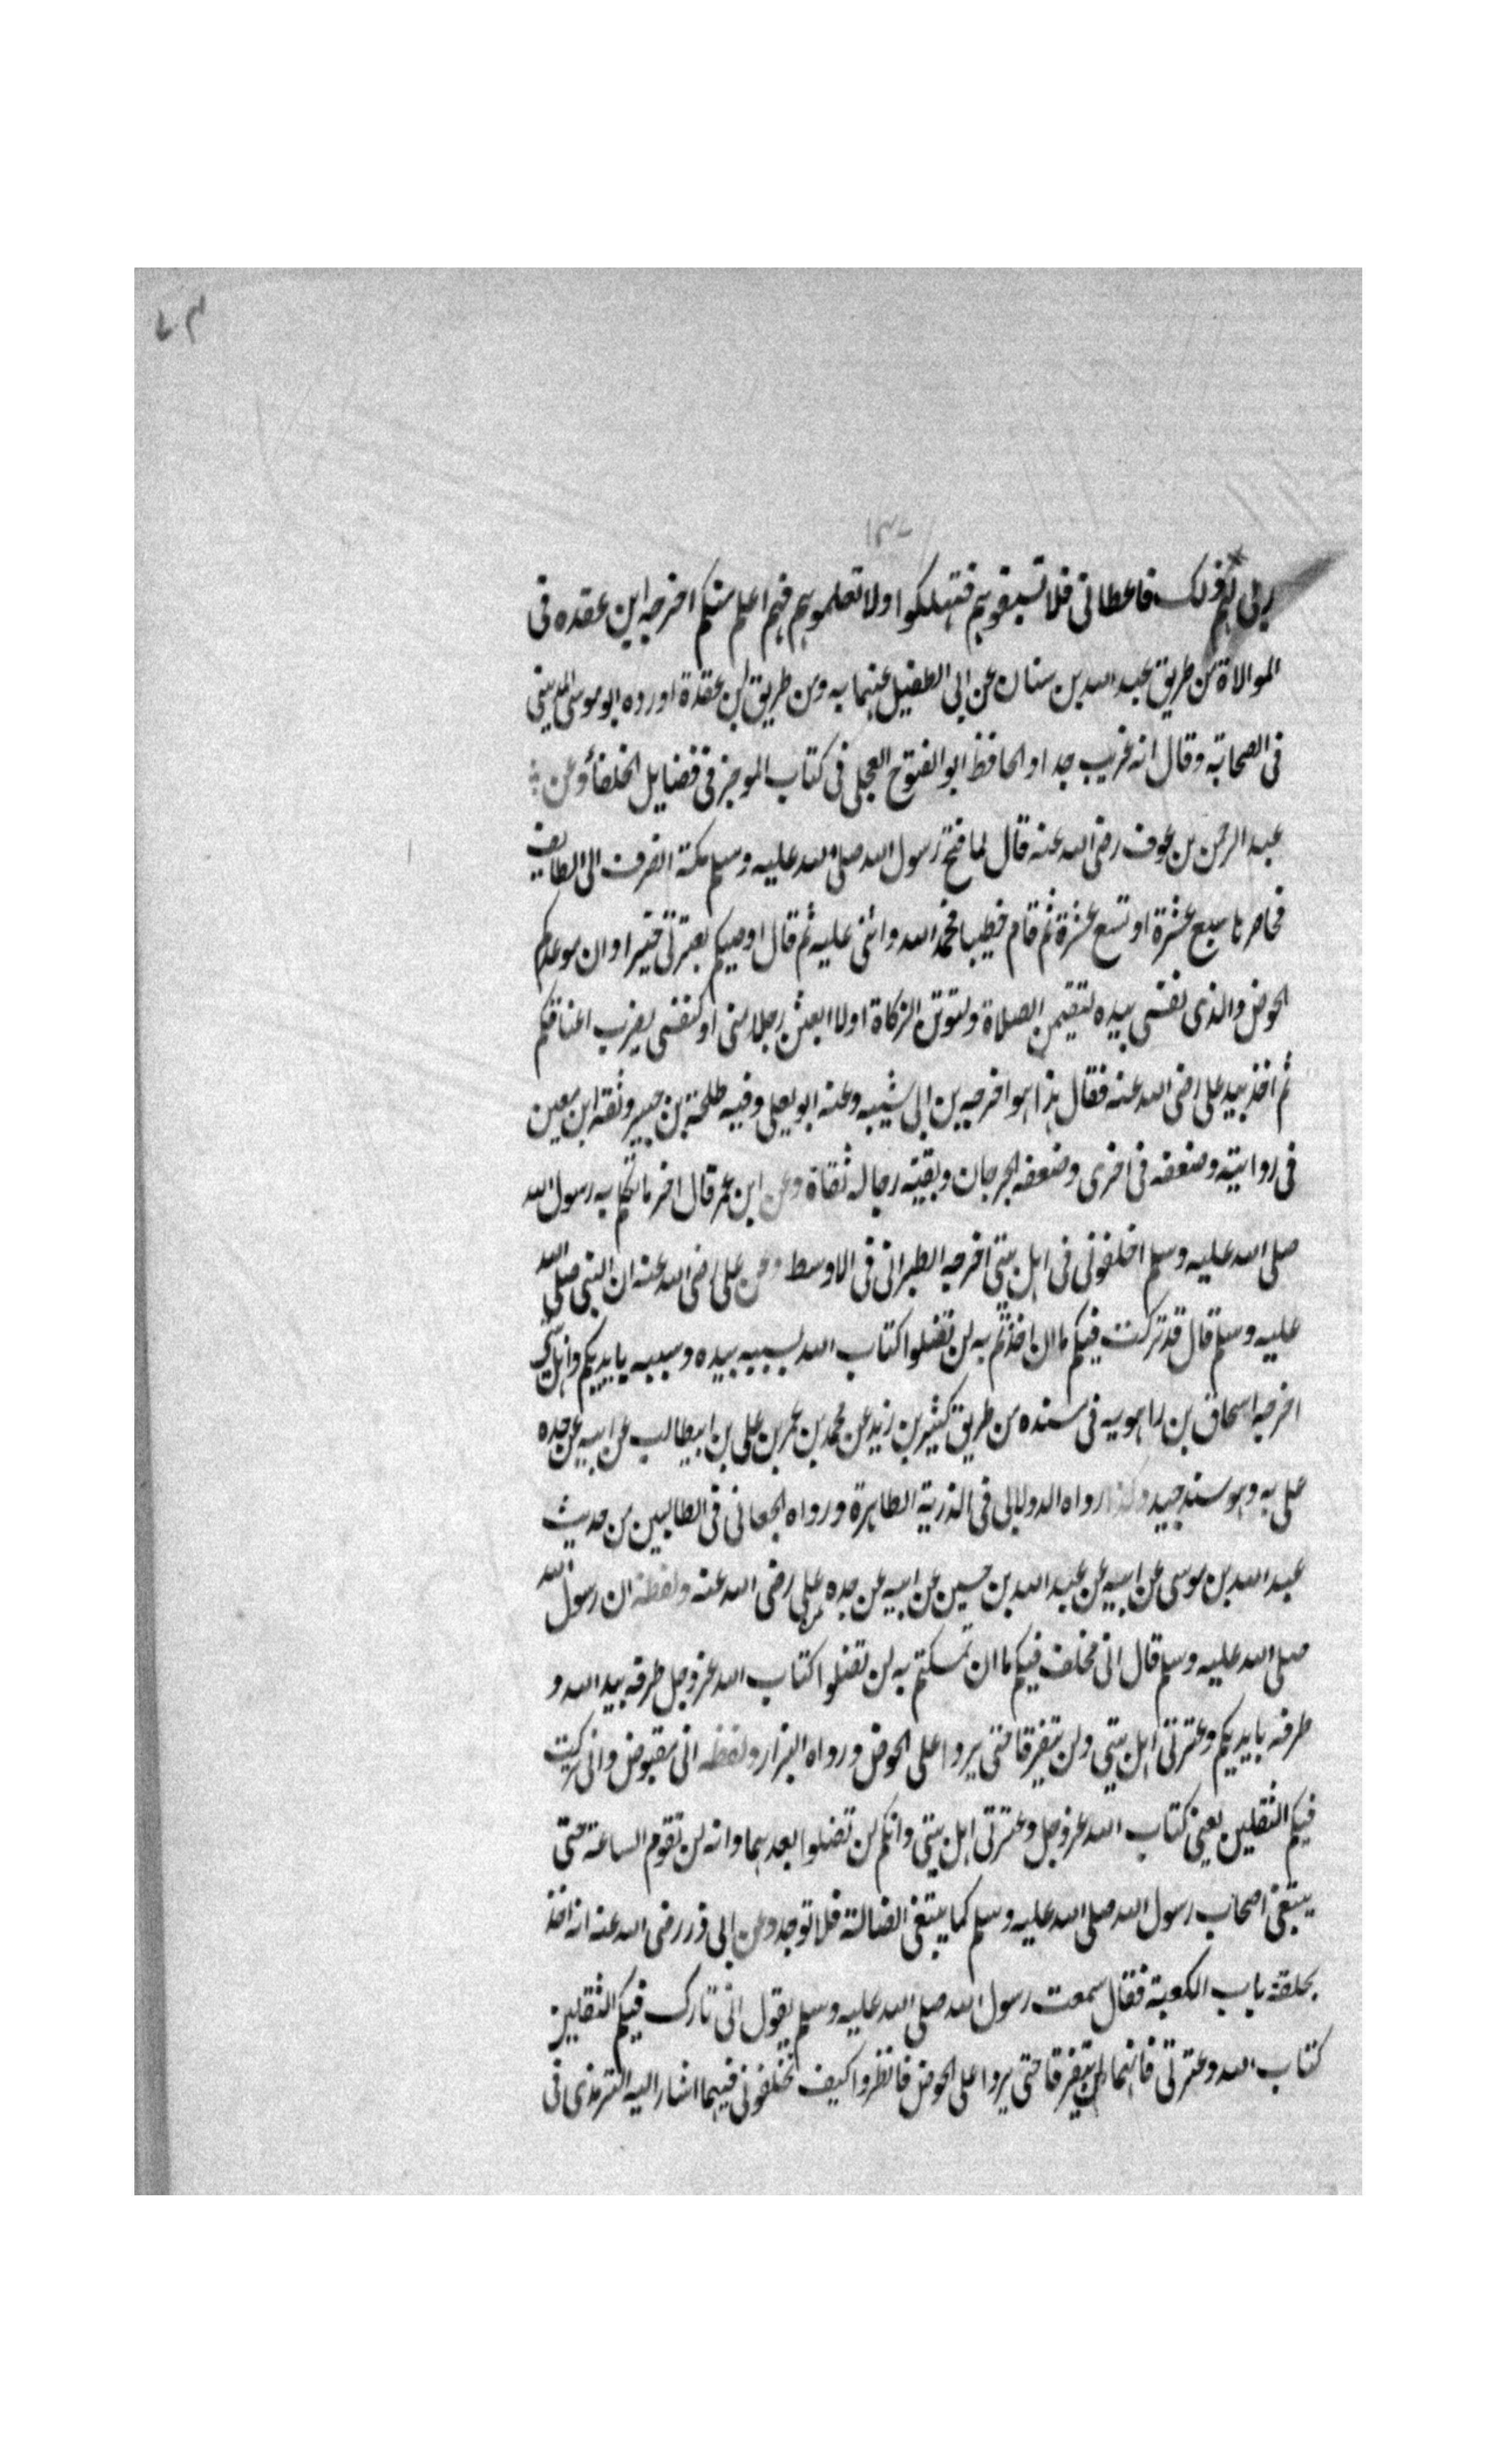 ١٣٧
ربى لهم ذلك فاعطانى فلا تسبقوهم فتهلكوا ولا تعلموهم فهم اعلم منكم اخرجه ابن عقده فى
الموالاة من طريق عبد الله بن سنان عن ابى الطفيل عنهما به ومن طريق ابن عقدة اورده ابو موسى المدينى
فى الصحابة وقال انه غريب جدا والحافظ ابو الفتوح العجلى فى كتاب الموجز فى فضايل الخلفأ وعن
عبد الرحمن بن عوف رضى الله عنه قال لما فتح رسول الله صلى الله عليه وسلم مكة انصرف الى الطايف
فحاصرها سبع عشرة او تسع عشرة ثم قام خطيبا فحمد الله واثنى عليه ثم قال اوصيكم بعترتى خيرا وان موعدكم
الحوض والذى نفسى بيده لتقيمن الصلاة ولتوتن الزكاة اولا ابعثن رجلا منى او كنفسى يضرب اعناقكم
ثم اخذ بيد على رضى الله عنه فقال هذا هو اخرجه بن ابى شيبه وعنه ابو يعلى وفيه طلحة بن جبير وثقه ابن معين
فى رواية وضعفه فى اخرى وضعفه الجرجان وبقية رجاله ثقاة وعن ابن عمر قال اخر ما تكلم به رسول الله
صلى الله عليه وسلم اخلفونى فى اهل بيتى اخرجه الطبرانى فى الاوسط وعن على رضى الله عنه ان النبى صلى الله
عليه وسلم قال قد تركت فيكم ما ان اخذتم به لن تضلوا كتاب الله سببه بيده وسببه بايديكم واهل بيتى
اخرجه اسحاق بن راهويه فى سنده من طريق كثير بن زيد عن محمد بن عمر بن على بن ابيطالب عن ابيه عن جده
على به وهو سند جيد وكذا رواه الدولابى فى الذرية الطاهرة ورواه الجعانى فى الطالبين من حديث
عبد الله بن موسى عن ابيه عن عبد الله بن حسين عن ابيه عن جده عن على رضى الله عنه ولفظه ان رسول الله
صلى الله عليه وسلم قال انى مخلف فيكم ما ان تمسكتم به لن تضلوا كتاب الله عز وجل طرفه بيد الله و
طرفه بايديكم وعترتى اهل بيتى ولن يتفرقا حتى يردا على الحوض ورواه البزار ولفظه انى مقبوض وانى تركت
فيكم الثقلين يعنى كتاب الله عز وجل وعترتى اهل بيتى وانكم لن تضلوا بعدهما وانه لن تقوم الساعة حتى
يبتغى اصحاب رسول الله صلى الله عليه وسلم كما يبتغى الضالة فلا توجد وعن ابى ذر رضى الله عنه انه اخذ
بحلقة باب الكعبة فقال سمعت رسول الله صلى الله عليه وسلم يقول انى تارك فيكم الثقلين
كتاب الله وعترتى فانهما لن يتفرقا حتى يردا على الحوض فانظروا كيف تخلفونى فيهما اشار اليه الترمذى فى